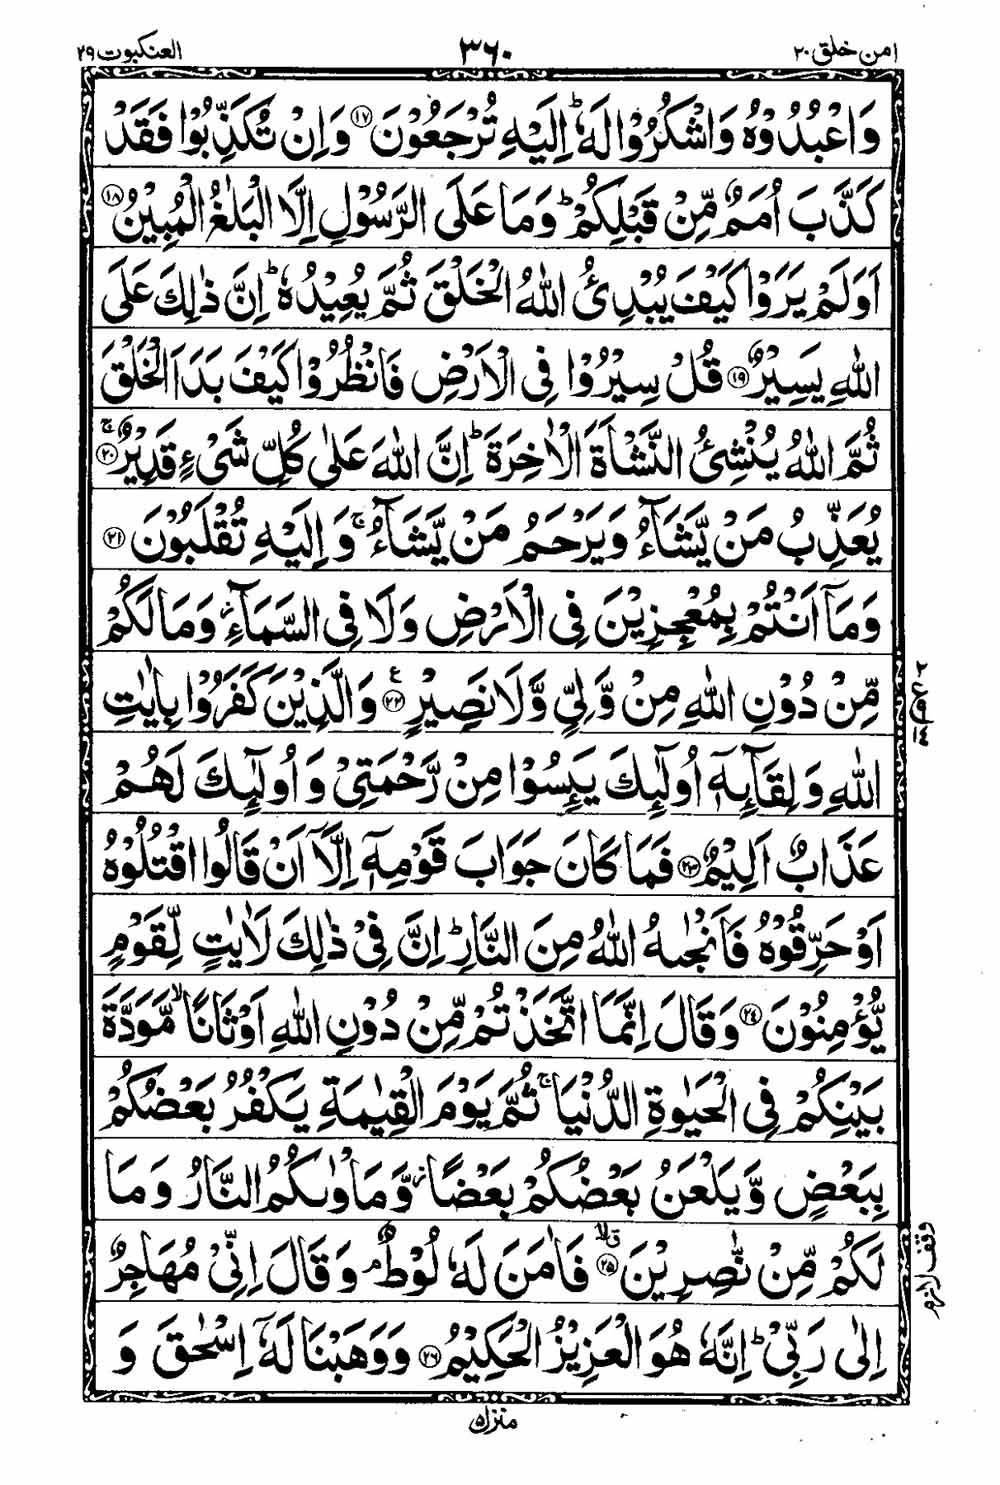 امن خلق ۲۰ ۳۶۰ العنكبوت ۲۹
وَاعْبُدُوْهُ وَاشْكُرُوْا لَهٗؕ اِلَيْهِ تُرْجَعُوْنَ ۝۱۷ وَاِنْ تُكَذِّبُوْا فَقَدْ
كَذَّبَ اُمَمٌ مِّنْ قَبْلِكُمْؕ وَمَا عَلَى الرَّسُوْلِ اِلَّا الْبَلٰغُ الْمُبِيْنُ ۝۱۸
اَوَلَمْ يَرَوْا كَيْفَ يُبْدِئُ اللّٰهُ الْخَلْقَ ثُمَّ يُعِيْدُهٗؕ اِنَّ ذٰلِكَ عَلَى
اللّٰهِ يَسِيْرٌ ۝۱۹ قُلْ سِيْرُوْا فِى الْاَرْضِ فَانْظُرُوْا كَيْفَ بَدَاَ الْخَلْقَ
ثُمَّ اللّٰهُ يُنْشِئُ النَّشْاَةَ الْاٰخِرَةَؕ اِنَّ اللّٰهَ عَلٰى كُلِّ شَىْءٍ قَدِيْرٌۚ ۝۲۰
يُعَذِّبُ مَنْ يَّشَآءُ وَيَرْحَمُ مَنْ يَّشَآءُۚ وَاِلَيْهِ تُقْلَبُوْنَ ۝۲۱
وَمَاۤ اَنْتُمْ بِمُعْجِزِيْنَ فِى الْاَرْضِ وَلَا فِى السَّمَآءِؗ وَمَا لَكُمْ
مِّنْ دُوْنِ اللّٰهِ مِنْ وَّلِىٍّ وَّلَا نَصِيْرٍ ۝۲۲ ع وَالَّذِيْنَ كَفَرُوْا بِاٰيٰتِ
اللّٰهِ وَلِقَآئِهٖۤ اُولٰٓئِكَ يَئِسُوْا مِنْ رَّحْمَتِىْ وَاُولٰٓئِكَ لَهُمْ
عَذَابٌ اَلِيْمٌ ۝۲۳ فَمَا كَانَ جَوَابَ قَوْمِهٖۤ اِلَّاۤ اَنْ قَالُوا اقْتُلُوْهُ
اَوْ حَرِّقُوْهُ فَاَنْجٰىهُ اللّٰهُ مِنَ النَّارِؕ اِنَّ فِىْ ذٰلِكَ لَاٰيٰتٍ لِّقَوْمٍ
يُّؤْمِنُوْنَ ۝۲۴ وَقَالَ اِنَّمَا اتَّخَذْتُمْ مِّنْ دُوْنِ اللّٰهِ اَوْثَانًاۙ مَّوَدَّةَ
بَيْنِكُمْ فِى الْحَيٰوةِ الدُّنْيَاۚ ثُمَّ يَوْمَ الْقِيٰمَةِ يَكْفُرُ بَعْضُكُمْ
بِبَعْضٍ وَّيَلْعَنُ بَعْضُكُمْ بَعْضًاؗ وَّمَاْوٰىكُمُ النَّارُ وَمَا
لَكُمْ مِّنْ نّٰصِرِيْنَ ۝۲۵ فَاٰمَنَ لَهٗ لُوْطٌۘ وَقَالَ اِنِّىْ مُهَاجِرٌ
اِلٰى رَبِّىْؕ اِنَّهٗ هُوَ الْعَزِيْزُ الْحَكِيْمُ ۝۲۶ وَوَهَبْنَا لَهٗۤ اِسْحٰقَ وَ
وقف لازم
منزل ۵